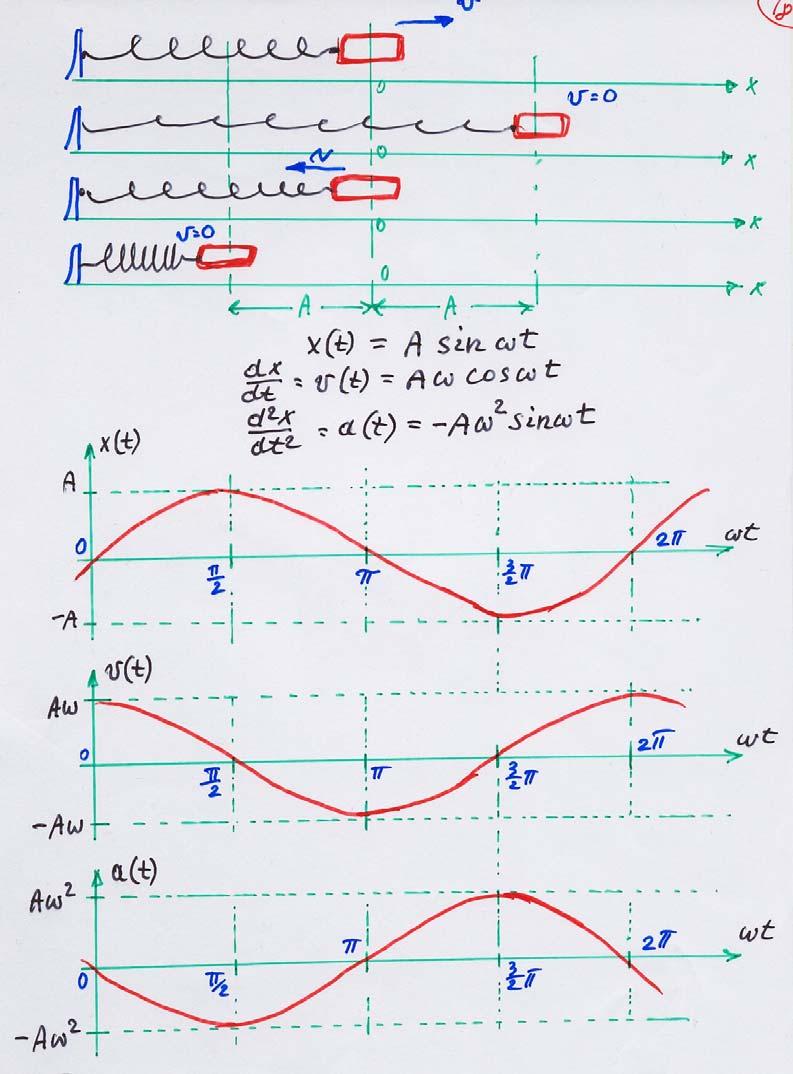 18
v
0
x
v=0
0
x
v
0
x
v=0
0
x
A A
x(t) = A sin ωt
dx/dt = v(t) = Aω cos ωt
d²x/dt² = a(t) = -Aω² sin ωt
x(t)
A
0
π/2
π
3/2 π
2π
ωt
-A
v(t)
Aω
0
π/2
π
3/2 π
2π
ωt
-Aω
a(t)
Aω²
0
π/2
π
3/2 π
2π
ωt
-Aω²